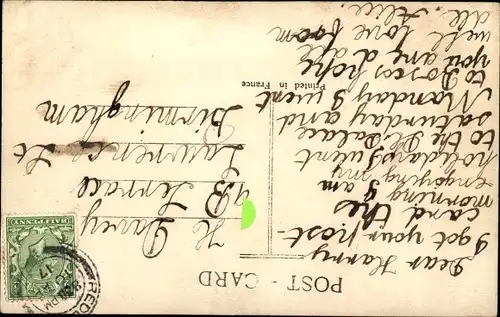 POST - CARD
Dear Harry
I got your post-
card this
morning I am
enjoying my
holidays I went
to the Palace
saturday and
Monday I went
to hope
you are all
well love from
all. Alice.
Printed in France
H Davey
Terrace
Lawrence St
Birmingham
HALFPENNY
PM
17